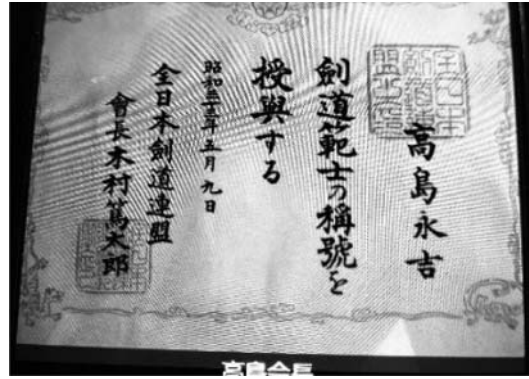 高島永吉
劍道範士の稱號を
授與する
昭和三十三年五月九日
全日本劍道連盟
會長木村篤太郎
高島会長